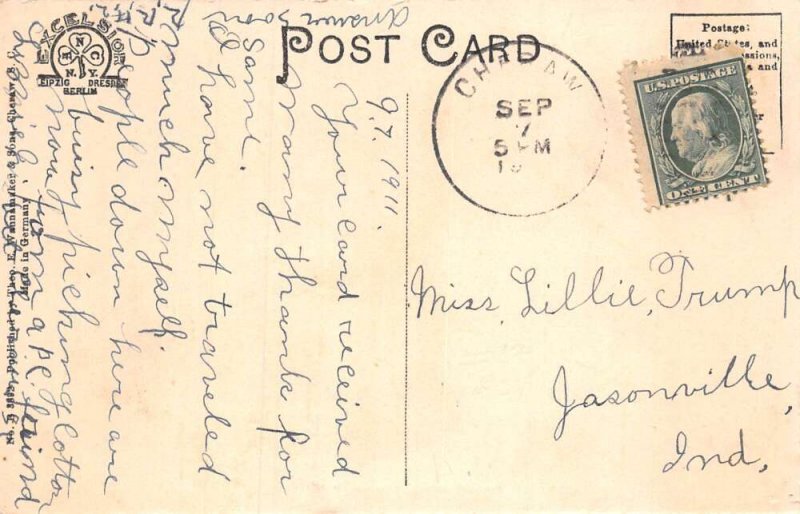 POST CARD
Postage:
United States, and
CHERAW
SEP
7
5 PM
U.S. POSTAGE
ONE CENT
Miss, Lillie, Trump
Jasonville,
Ind,
9.7. 1911.
Your card received
many thanks for
same.
I have not traveled
much myself.
People down here are
busy picking cotton
now
from a P.C. friend
Answer soon
EXCELSIOR
N.Y.
LEIPZIG DRESDEN
BERLIN
Published by Theo. E. Wannamaker & Sons, Cheraw, S. C.
Made in Germany